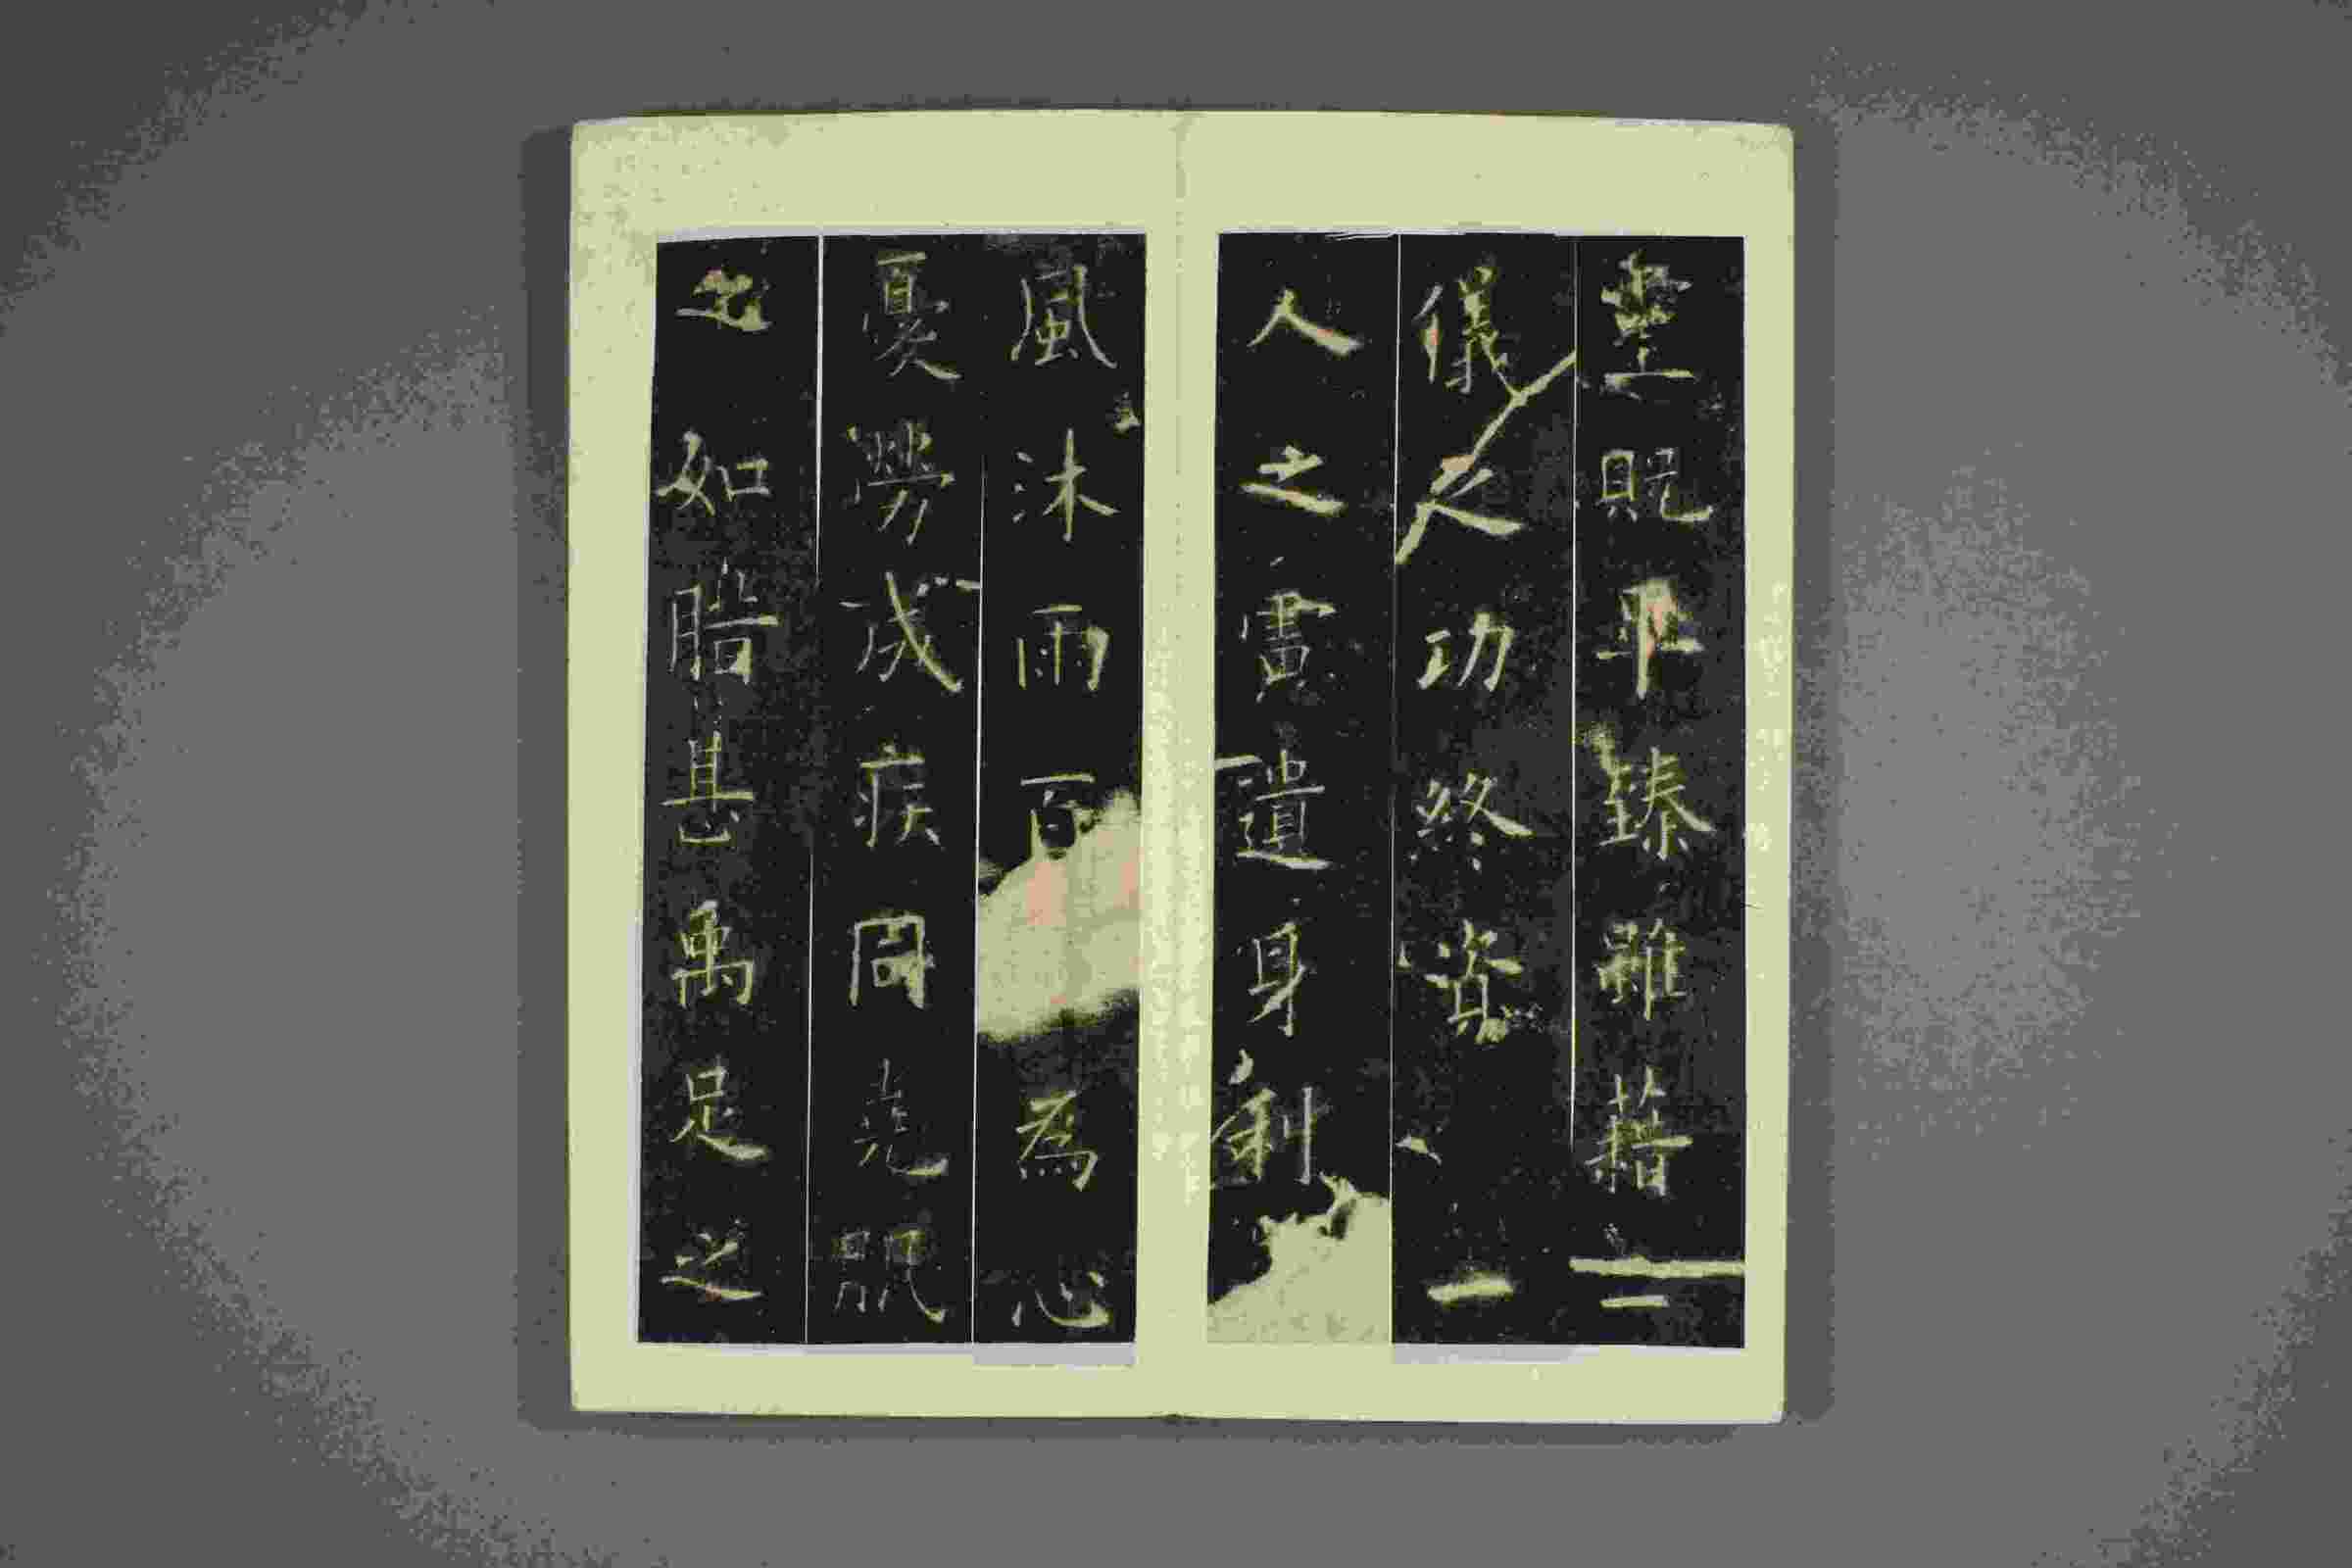 壑既平臻雖藉二
儀之功終資一
人之慮遺身利
風沐雨百為心
憂勞成疾同堯肌
之如腊甚禹足之